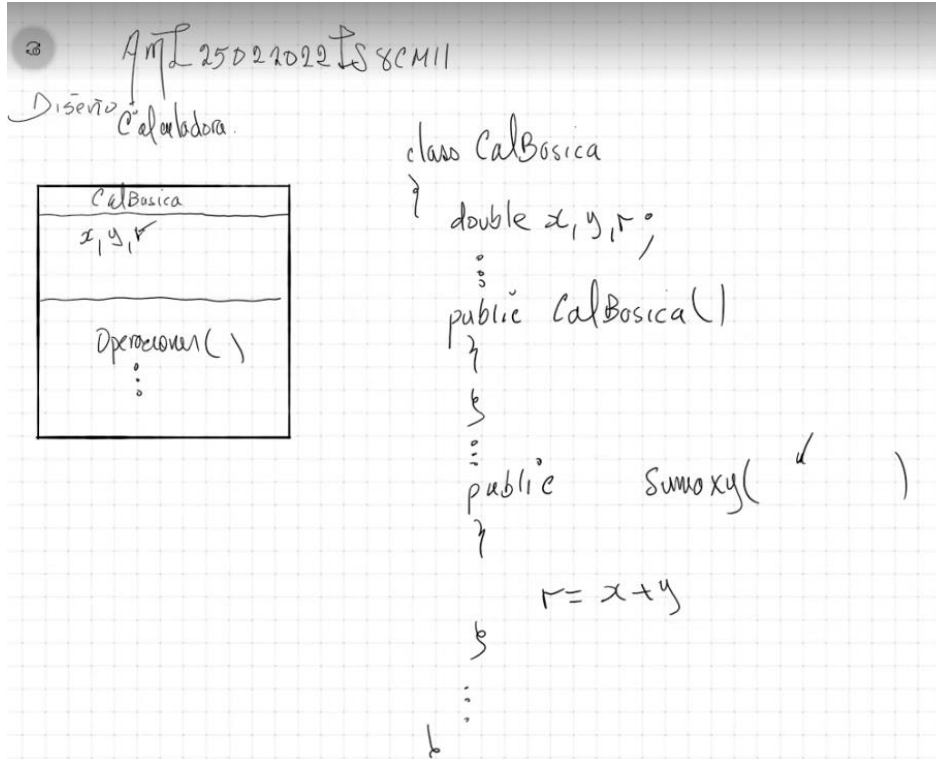 AML 25022022 IS 8CM11
Diseño
Calculadora.
CalBasica
x, y, r
Operaciones( )
⋮
class CalBasica
{
double x, y, r;
⋮
public CalBasica()
{
}
⋮
public Sumaxy( )
{
r = x + y
}
⋮
}